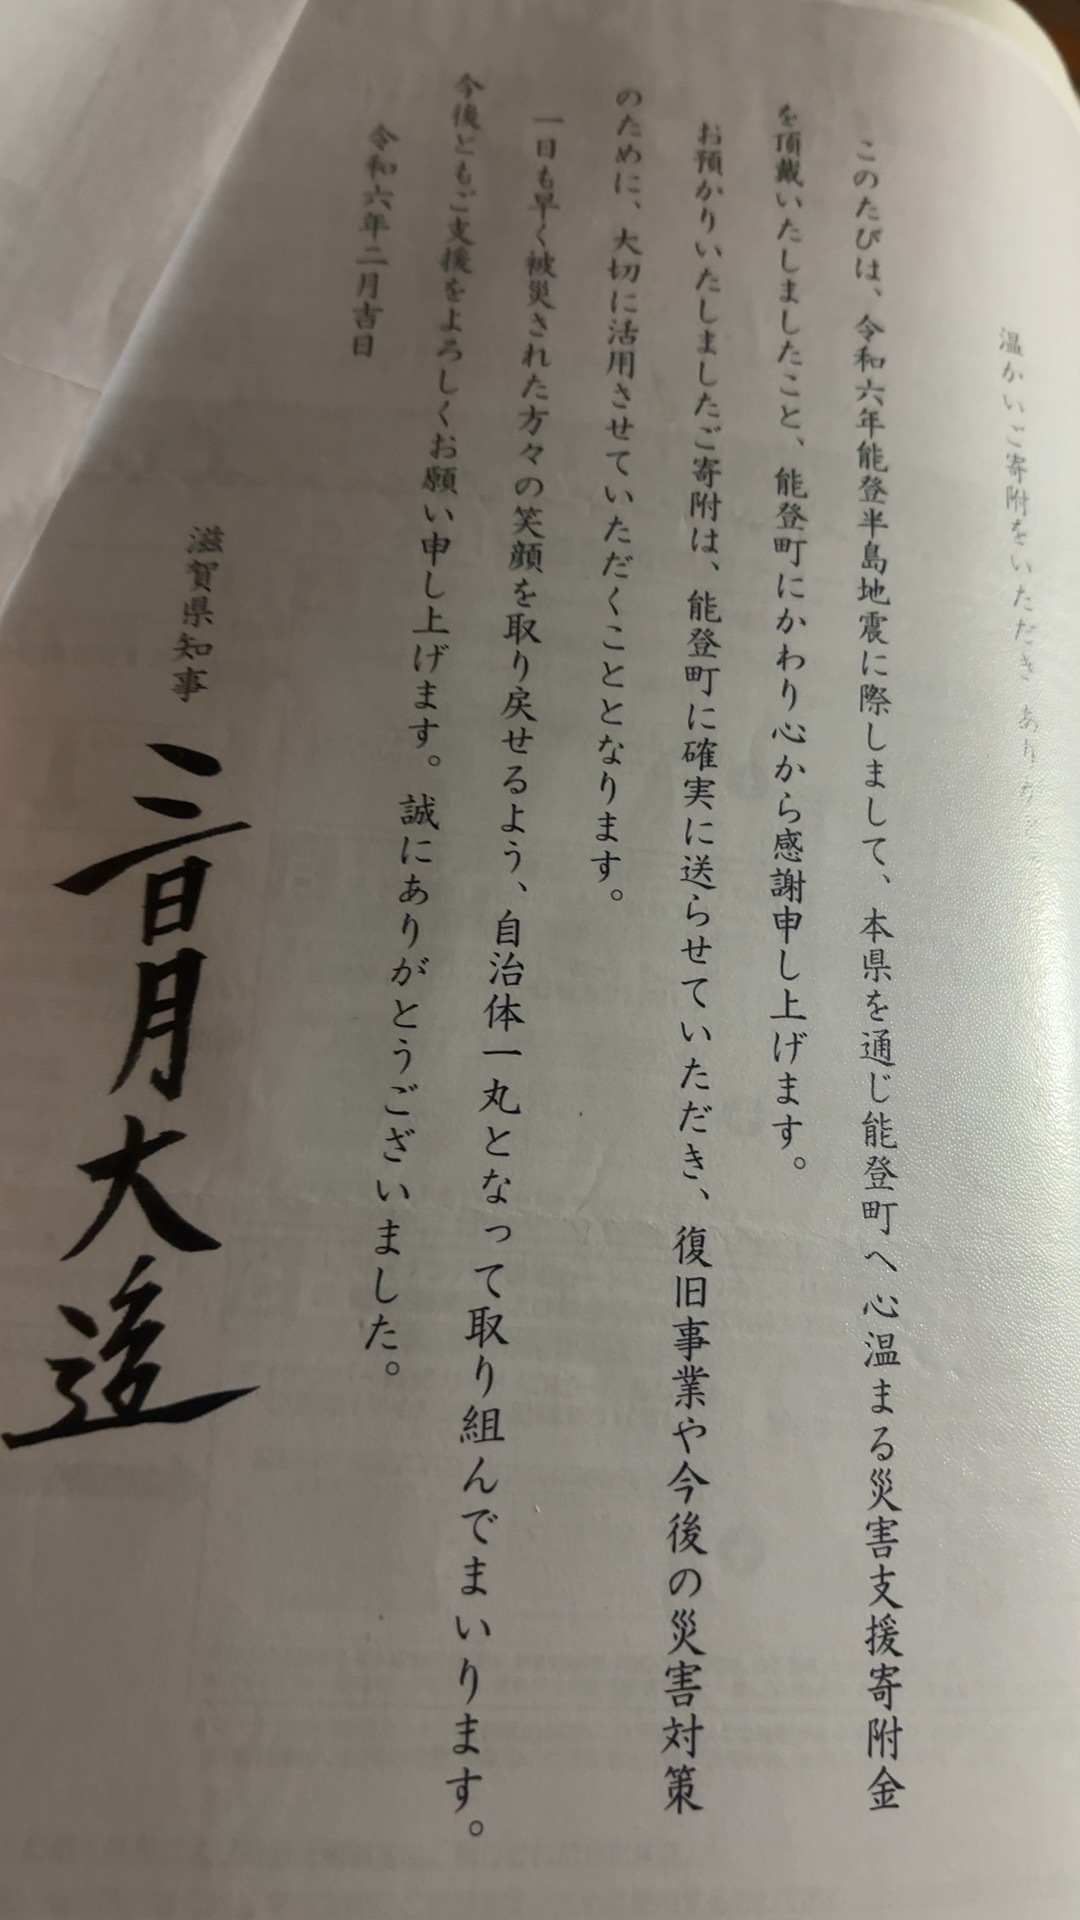 温かいご寄附をいただき あり
このたびは、令和六年能登半島地震に際しまして、本県を通じ能登町へ心温まる災害支援寄附金
を頂戴いたしましたこと、能登町にかわり心から感謝申し上げます。
お預かりいたしましたご寄附は、能登町に確実に送らせていただき、復旧事業や今後の災害対策
のために、大切に活用させていただくこととなります。
一日も早く被災された方々の笑顔を取り戻せるよう、自治体一丸となって取り組んでまいります。
今後ともご支援をよろしくお願い申し上げます。誠にありがとうございました。
令和六年二月吉日
滋賀県知事 三日月大造